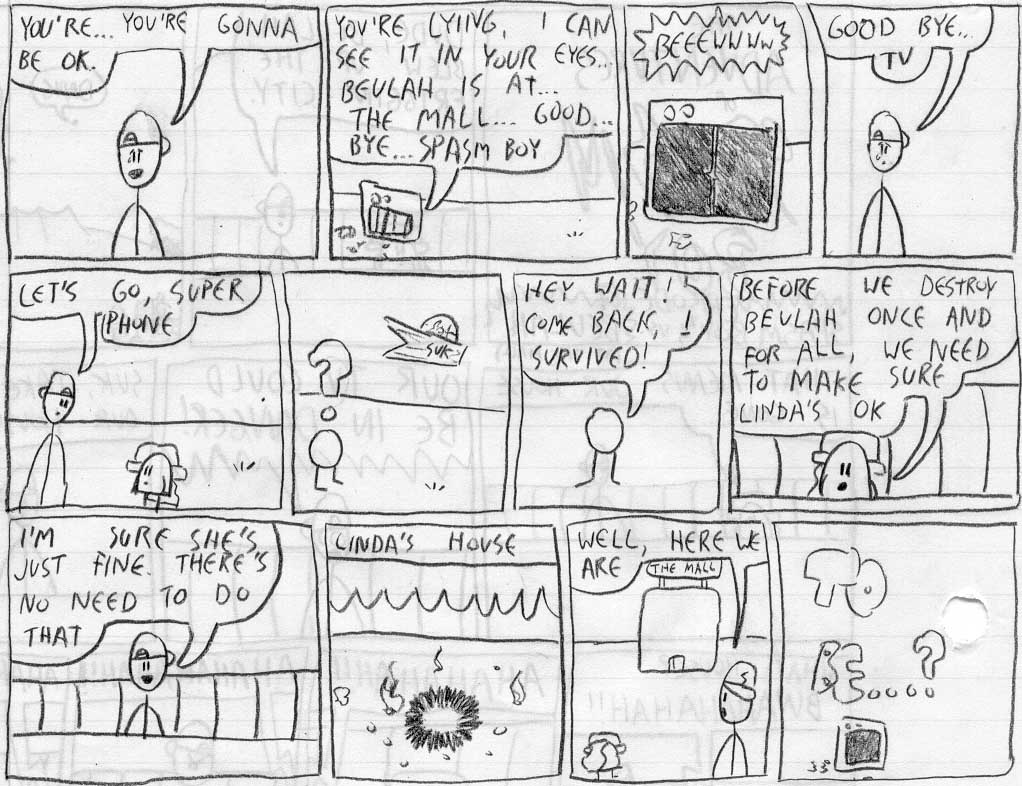 YOU'RE... YOU'RE GONNA
BE OK.
YOU'RE LYING, I CAN
SEE IT IN YOUR EYES...
BEULAH IS AT...
THE MALL... GOOD...
BYE... SPASM BOY
BEEEWWWW
GOOD BYE...
TV
LET'S GO, SUPER
PHONE
HEY WAIT!
COME BACK, I
SURVIVED!
BEFORE WE DESTROY
BEULAH ONCE AND
FOR ALL, WE NEED
TO MAKE SURE
LINDA'S OK
I'M SURE SHE'S
JUST FINE. THERE'S
NO NEED TO DO
THAT
LINDA'S HOUSE
WELL, HERE WE
ARE
THE MALL
?